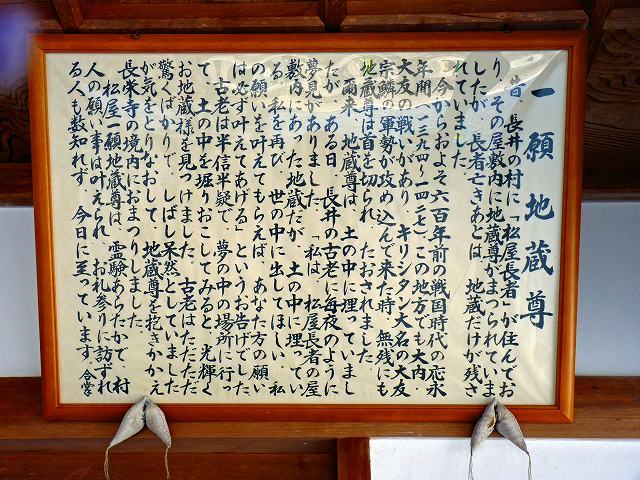 一願地蔵尊
昔、長井の村に「松屋長者」が住んでお
り、その屋敷内に地蔵尊がまつられていま
したが、長者亡きあとは、地蔵だけが残さ
れていました。
今からおよそ六百年前の戦国時代の応永
年間(一三九四〜一四二七)この地方でも大内、
大友の戦いがあり、キリシタン大名の大友
宗麟の軍勢が攻め込んで来た時、無残にも
地蔵尊は首を切られ、たおされました。
爾来、地蔵尊は、土の中に埋っていまし
たが、ある日、長井の古老に毎夜のように
夢見がありました。「私は、松屋長者の屋
敷内にあった地蔵だが、土の中に埋ってい
る。私を再び、世の中に出してほしい。私
の願いを叶えてもらえば、あなた方の願い
は必ず叶えてあげる」というお告げでした。
古老は半信半疑で、夢の中の場所に行っ
て、土の中を堀りおこしてみると、光輝く
お地蔵様を見つけました。古老はただただ
驚くばかりで、しばし呆然としていました
が気をとりなおして、地蔵尊を抱きかかえ
長栄寺の境内におまつりしました。
松屋一願地蔵尊は、霊験あらたかで、村
人の願い事は叶えられ、お礼参りに訪ずれ
る人も数知れず、今日に至っています。合掌